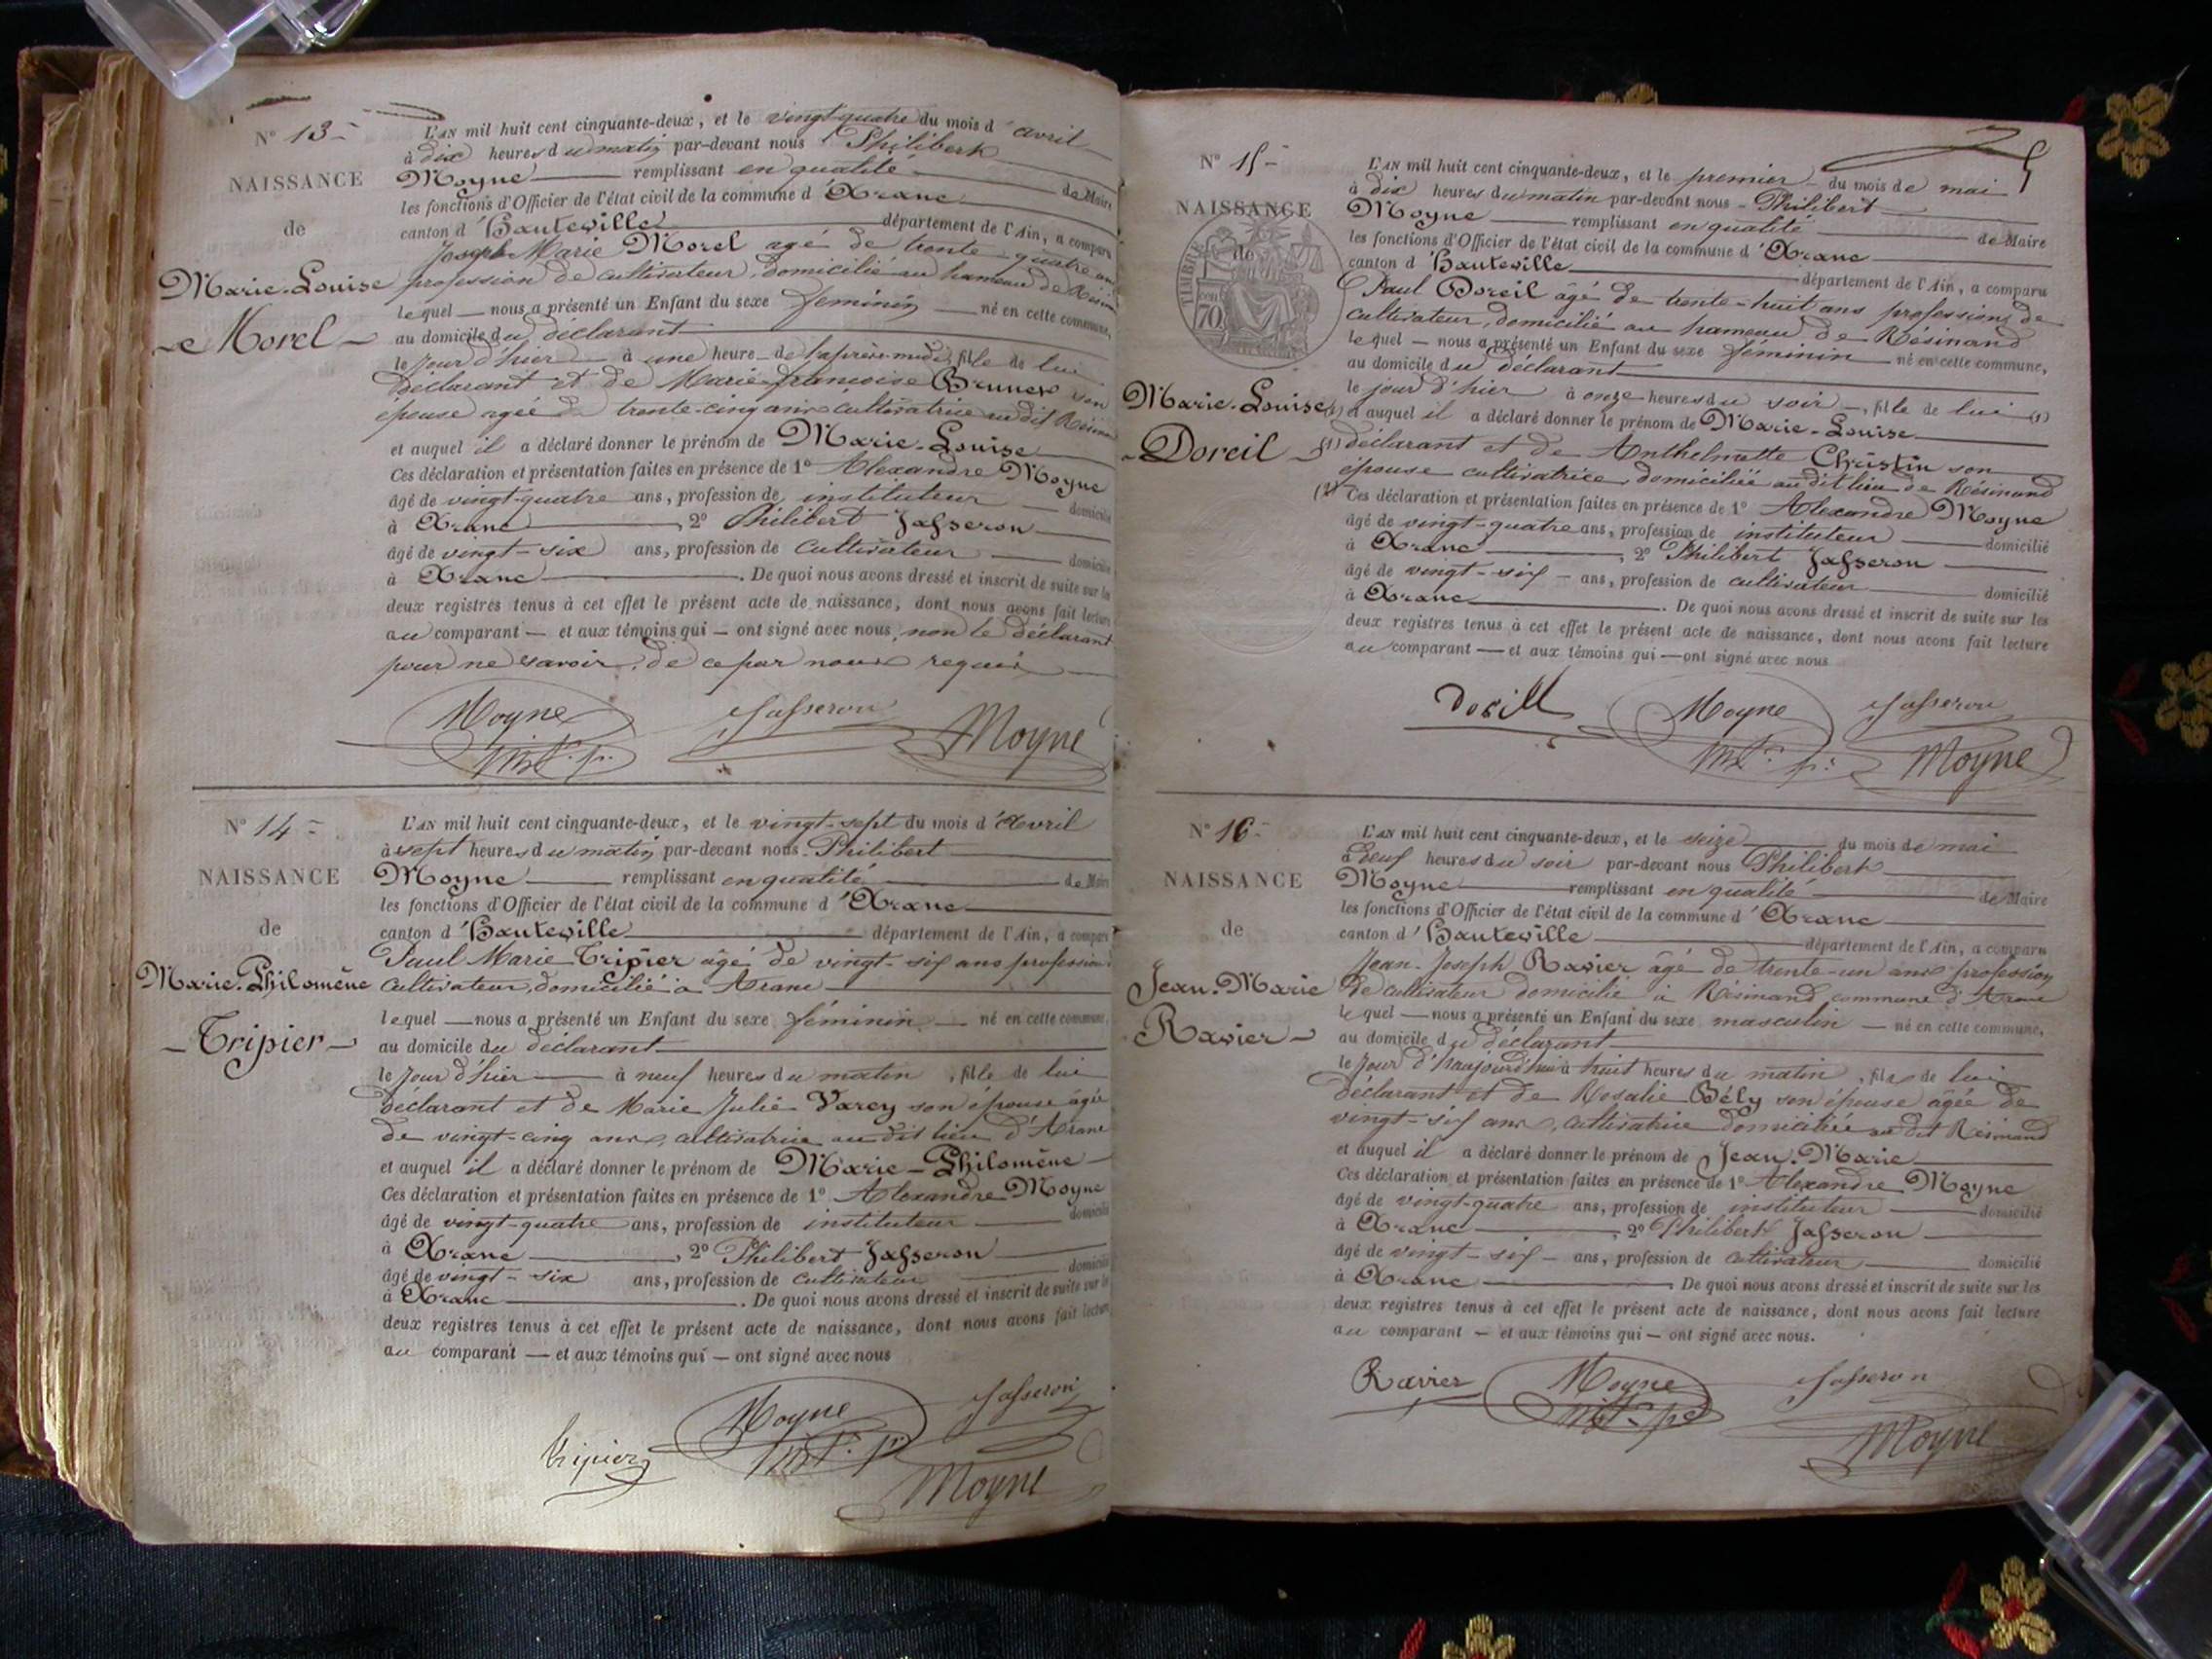 N° 13
NAISSANCE
de
Marie-Louise
Morel
L'AN mil huit cent cinquante-deux, et le vingt-quatre du mois d'avril
à dix heures du matin par-devant nous Philibert
Moyne remplissant en qualité de Maire
les fonctions d'Officier de l'état civil de la commune d'Aranc
canton d'Hauteville département de l'Ain, a comparu
Joseph Marie Morel agé de trente-quatre ans
profession de cultivateur, domicilié au hameau de Résinand
lequel nous a présenté un Enfant du sexe féminin né en cette commune,
au domicile du déclarant
le jour d'hier à une heure de l'après-midi, fille de lui
déclarant et de Marie françoise Brunet son
épouse agée de trente-cinq ans cultivatrice au dit Résinand
et auquel il a déclaré donner le prénom de Marie-Louise
Ces déclaration et présentation faites en présence de 1° Alexandre Moyne
âgé de vingt-quatre ans, profession de instituteur domicilié
à Aranc, 2° Philibert Jasseron
âgé de vingt-six ans, profession de cultivateur domicilié
à Aranc. De quoi nous avons dressé et inscrit de suite sur les
deux registres tenus à cet effet le présent acte de naissance, dont nous avons fait lecture
au comparant et aux témoins qui ont signé avec nous, non le déclarant
pour ne savoir, de ce par nous requis
Moyne Jasseron Moyne
N° 14
NAISSANCE
de
Marie-Philomène
Tripier
L'AN mil huit cent cinquante-deux, et le vingt-sept du mois d'Avril
à sept heures du matin par-devant nous Philibert
Moyne remplissant en qualité de Maire
les fonctions d'Officier de l'état civil de la commune d'Aranc
canton d'Hauteville département de l'Ain, a comparu
Paul Marie Tripier âgé de vingt-six ans profession
cultivateur, domicilié à Aranc
lequel nous a présenté un Enfant du sexe féminin né en cette commune,
au domicile du déclarant
le jour d'hier à neuf heures du matin, fille de lui
déclarant et de Marie Julie Varey son épouse âgée
de vingt-cinq ans, cultivatrice au dit lieu d'Aranc
et auquel il a déclaré donner le prénom de Marie-Philomène
Ces déclaration et présentation faites en présence de 1° Alexandre Moyne
âgé de vingt-quatre ans, profession de instituteur domicilié
à Aranc, 2° Philibert Jasseron
âgé de vingt-six ans, profession de cultivateur domicilié
à Aranc. De quoi nous avons dressé et inscrit de suite sur les
deux registres tenus à cet effet le présent acte de naissance, dont nous avons fait lecture
au comparant et aux témoins qui ont signé avec nous
Tripier Moyne Jasseron
Moyne
N° 15
NAISSANCE
de
TIMBRE
70
Marie-Louise
Doreil
L'AN mil huit cent cinquante-deux, et le premier du mois de mai
à dix heures du matin par-devant nous Philibert
Moyne remplissant en qualité de Maire
les fonctions d'Officier de l'état civil de la commune d'Aranc
canton d'Hauteville département de l'Ain, a comparu
Paul Doreil âgé de trente-huit ans profession de
cultivateur, domicilié au hameau de Résinand
lequel nous a présenté un Enfant du sexe féminin né en cette commune,
au domicile du déclarant
le jour d'hier à onze heures du soir, fille de lui (1)
et auquel il a déclaré donner le prénom de Marie-Louise
(1) déclarant et de Anthelmette Christin son
épouse cultivatrice, domiciliée au dit lieu de Résinand
Ces déclaration et présentation faites en présence de 1° Alexandre Moyne
âgé de vingt-quatre ans, profession de instituteur domicilié
à Aranc, 2° Philibert Jasseron
âgé de vingt-six ans, profession de cultivateur domicilié
à Aranc. De quoi nous avons dressé et inscrit de suite sur les
deux registres tenus à cet effet le présent acte de naissance, dont nous avons fait lecture
au comparant et aux témoins qui ont signé avec nous
Dorill Moyne Jasseron
Moyne
N° 16
NAISSANCE
de
Jean-Marie
Ravier
L'AN mil huit cent cinquante-deux, et le seize du mois de mai
à neuf heures du soir par-devant nous Philibert
Moyne remplissant en qualité de Maire
les fonctions d'Officier de l'état civil de la commune d'Aranc
canton d'Hauteville département de l'Ain, a comparu
Jean-Joseph Ravier âgé de trente-un ans profession
de cultivateur domicilié à Résinand commune d'Aranc
lequel nous a présenté un Enfant du sexe masculin né en cette commune,
au domicile du déclarant
le jour d'haujourd'hui à huit heures du matin, fils de lui
déclarant et de Rosalie Bély son épouse agée de
vingt-six ans, cultivatrice domiciliée au dit Résinand
et auquel il a déclaré donner le prénom de Jean-Marie
Ces déclaration et présentation faites en présence de 1° Alexandre Moyne
âgé de vingt-quatre ans, profession de instituteur domicilié
à Aranc, 2° Philibert Jasseron
âgé de vingt-six ans, profession de cultivateur domicilié
à Aranc. De quoi nous avons dressé et inscrit de suite sur les
deux registres tenus à cet effet le présent acte de naissance, dont nous avons fait lecture
au comparant et aux témoins qui ont signé avec nous.
Ravier Moyne Jasseron
Moyne